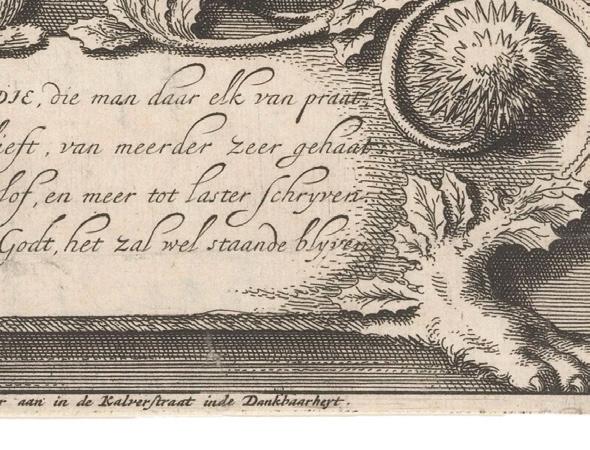 DIE, die man daar elk van praat,
ieft, van meerder zeer gehaat
lof, en meer tot laster schryven
Godt, het zal wel staande blyven
r aan in de Kalverstraat inde Dankbaarheyt.